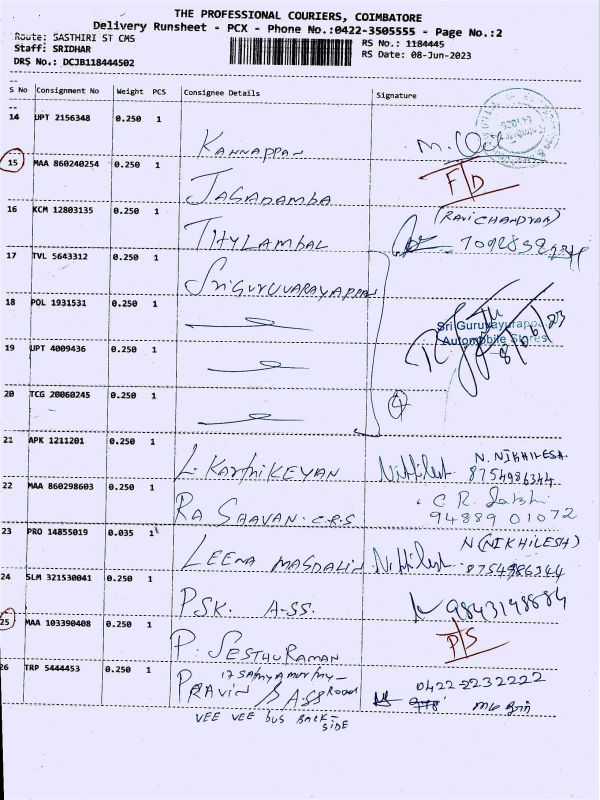 THE PROFESSIONAL COURIERS, COIMBATORE
Delivery Runsheet - PCX - Phone No.:0422-3505555 - Page No.:2
Route: SASTHIRI ST CMS
RS No.: 1184445
Staff: SRIDHAR
RS Date: 08-Jun-2023
DRS No.: DCJB118444502
S No Consignment No Weight PCS Consignee Details Signature
14 UPT 2156348 0.250 1
KANNAPPAN
15 MAA 860240254 0.250 1
JAGADAMBA F/D
16 KCM 12803135 0.250 1
(RAVICHANDRAN)
17 TVL 5643312 0.250 1
SRIGURUVARAYAPPAN
18 POL 1931531 0.250 1
Sri Guruvayurappa
Automobile Stores
8/06/23
19 UPT 4009436 0.250 1
20 TCG 20060245 0.250 1
4
21 APK 1211201 0.250 1
N. NIKHILESH.
L. KARTHIKEYAN 8754986344
22 MAA 860298603 0.250 1
RAGHAVAN. C.R.S 94889 01072
23 PRO 14855019 0.035 1
N (NIKHILESH)
LEENA MAGDALIN 8754986344
24 SLM 321530041 0.250 1
PSK. ASS. 9843198884
25 MAA 103390408 0.250 1
P. SESTHURAMAN P/S
26 TRP 5444453 0.250 1
0422-2232222
PRAVIN ASS Road
VEE VEE bus BACK-
SIDE